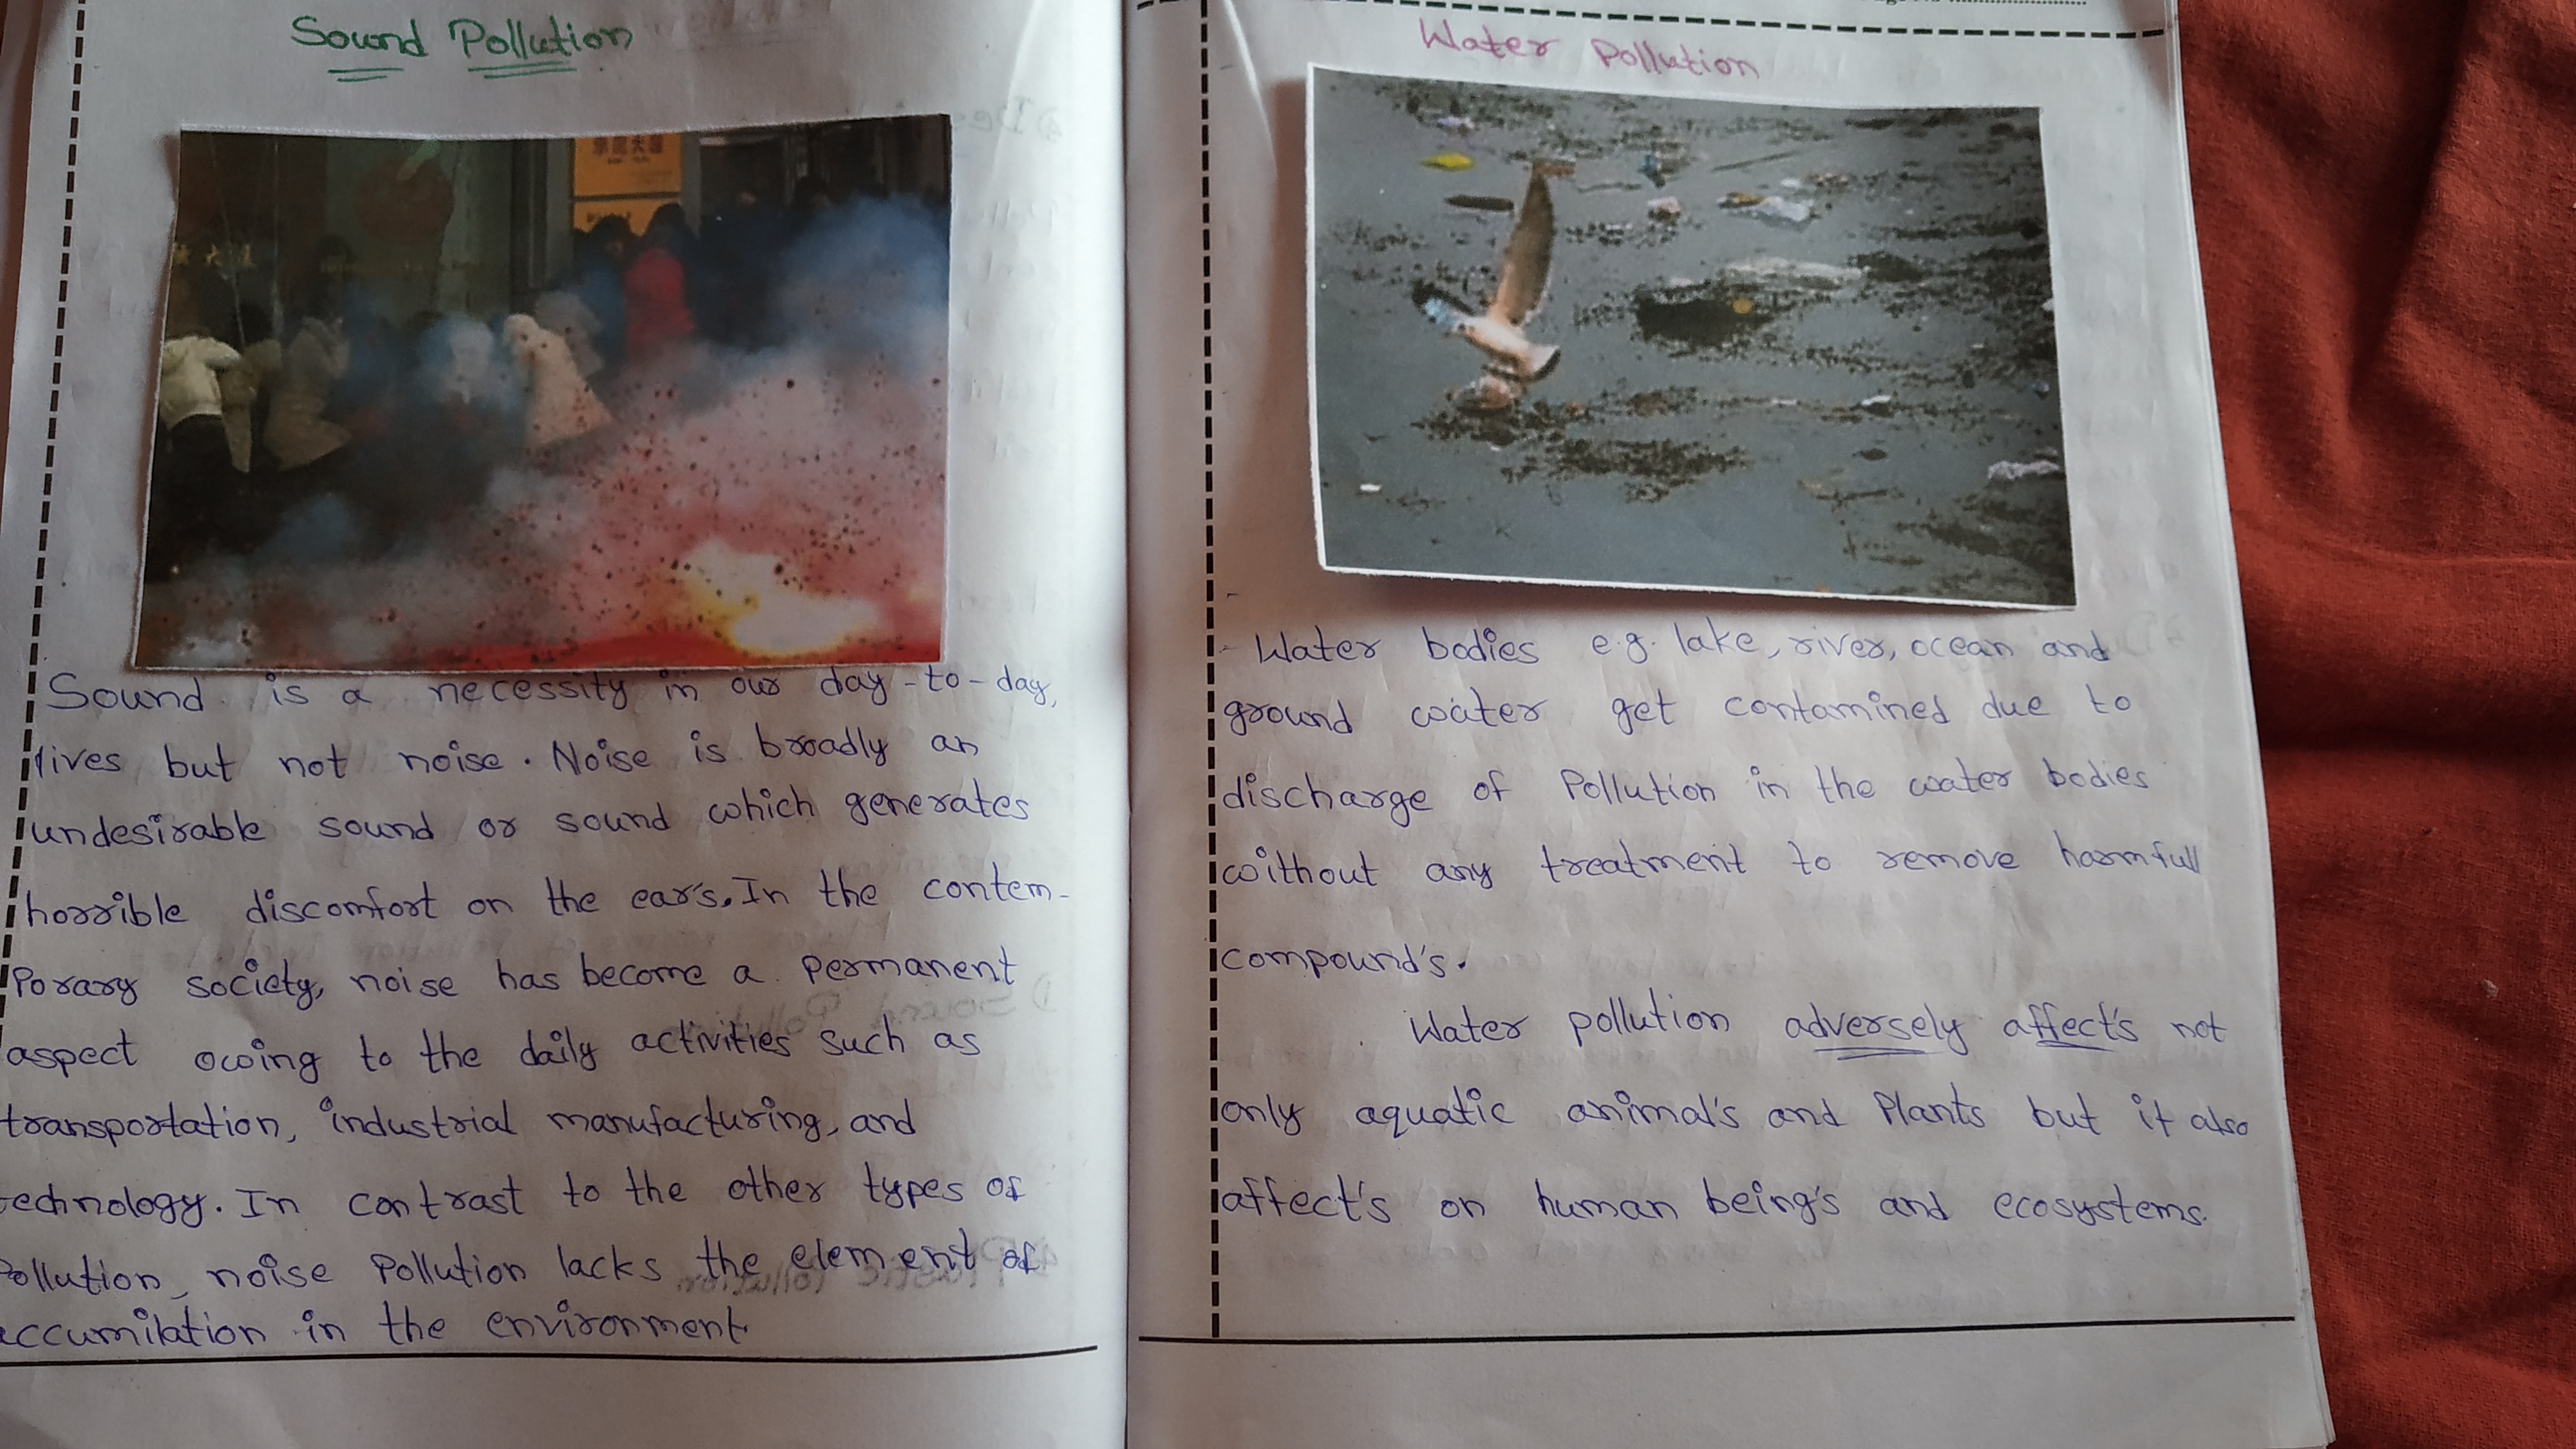 Sound Pollution
Sound is a necessity in our day-to-day,
lives but not noise. Noise is broadly an
undesirable sound or sound which generates
horrible discomfort on the ear's. In the contem-
porary society, noise has become a permanent
aspect owing to the daily activities such as
transportation, industrial manufacturing, and
technology. In contrast to the other types of
Pollution, noise Pollution lacks the element of
accumilation in the environment.
Water Pollution
Water bodies e.g. lake, river, ocean and
ground water get contamined due to
discharge of Pollution in the water bodies
without any treatment to remove harmfull
compound's.
Water pollution adversely affect's not
only aquatic animal's and Plants but it also
affect's on human being's and ecosystems.